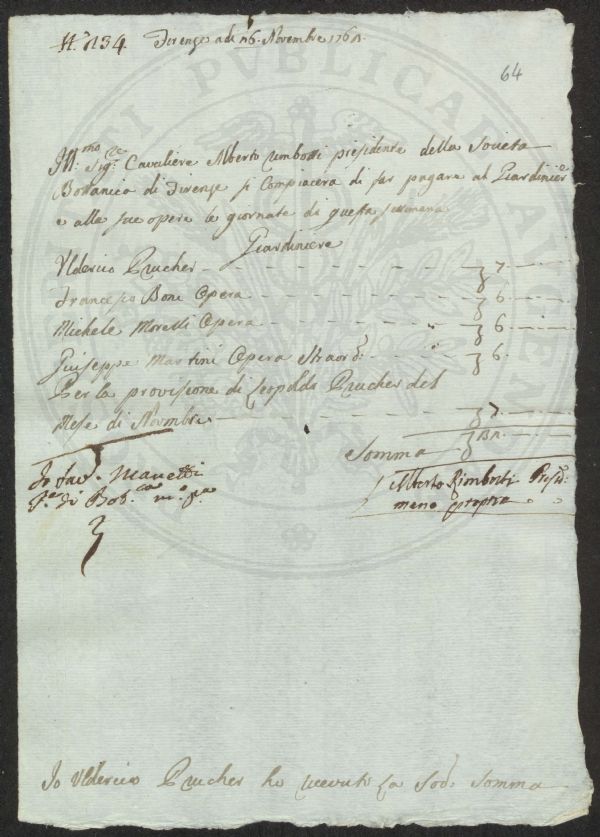 N.° 134 Firenze adi 16. Novembre 1761.
64
Ill:mo Sig:re Cavaliere Alberto Rimbotti presidente della Societa
Bottanica di Firenze si Compiacerà di far pagare al Giardiniere
e alle sue opere le giornate di questa settimana
Giardiniere
Ulderico Prucher 7
Francesco Boni Opera 6
Michele Morelli Opera 6
Giuseppe Martini Opera Straord: 6.
Per la provisione di Leopoldo Prucher del
Mese di Novembre 7.
Somma
Io Sav: Manetti
Alberto Rimbotti Presid:
S:o di Bot:ca m:o p:a
mano propria
Io Ulderico Prucher ho ricevuto La Sod: Somma
PUBLICAE